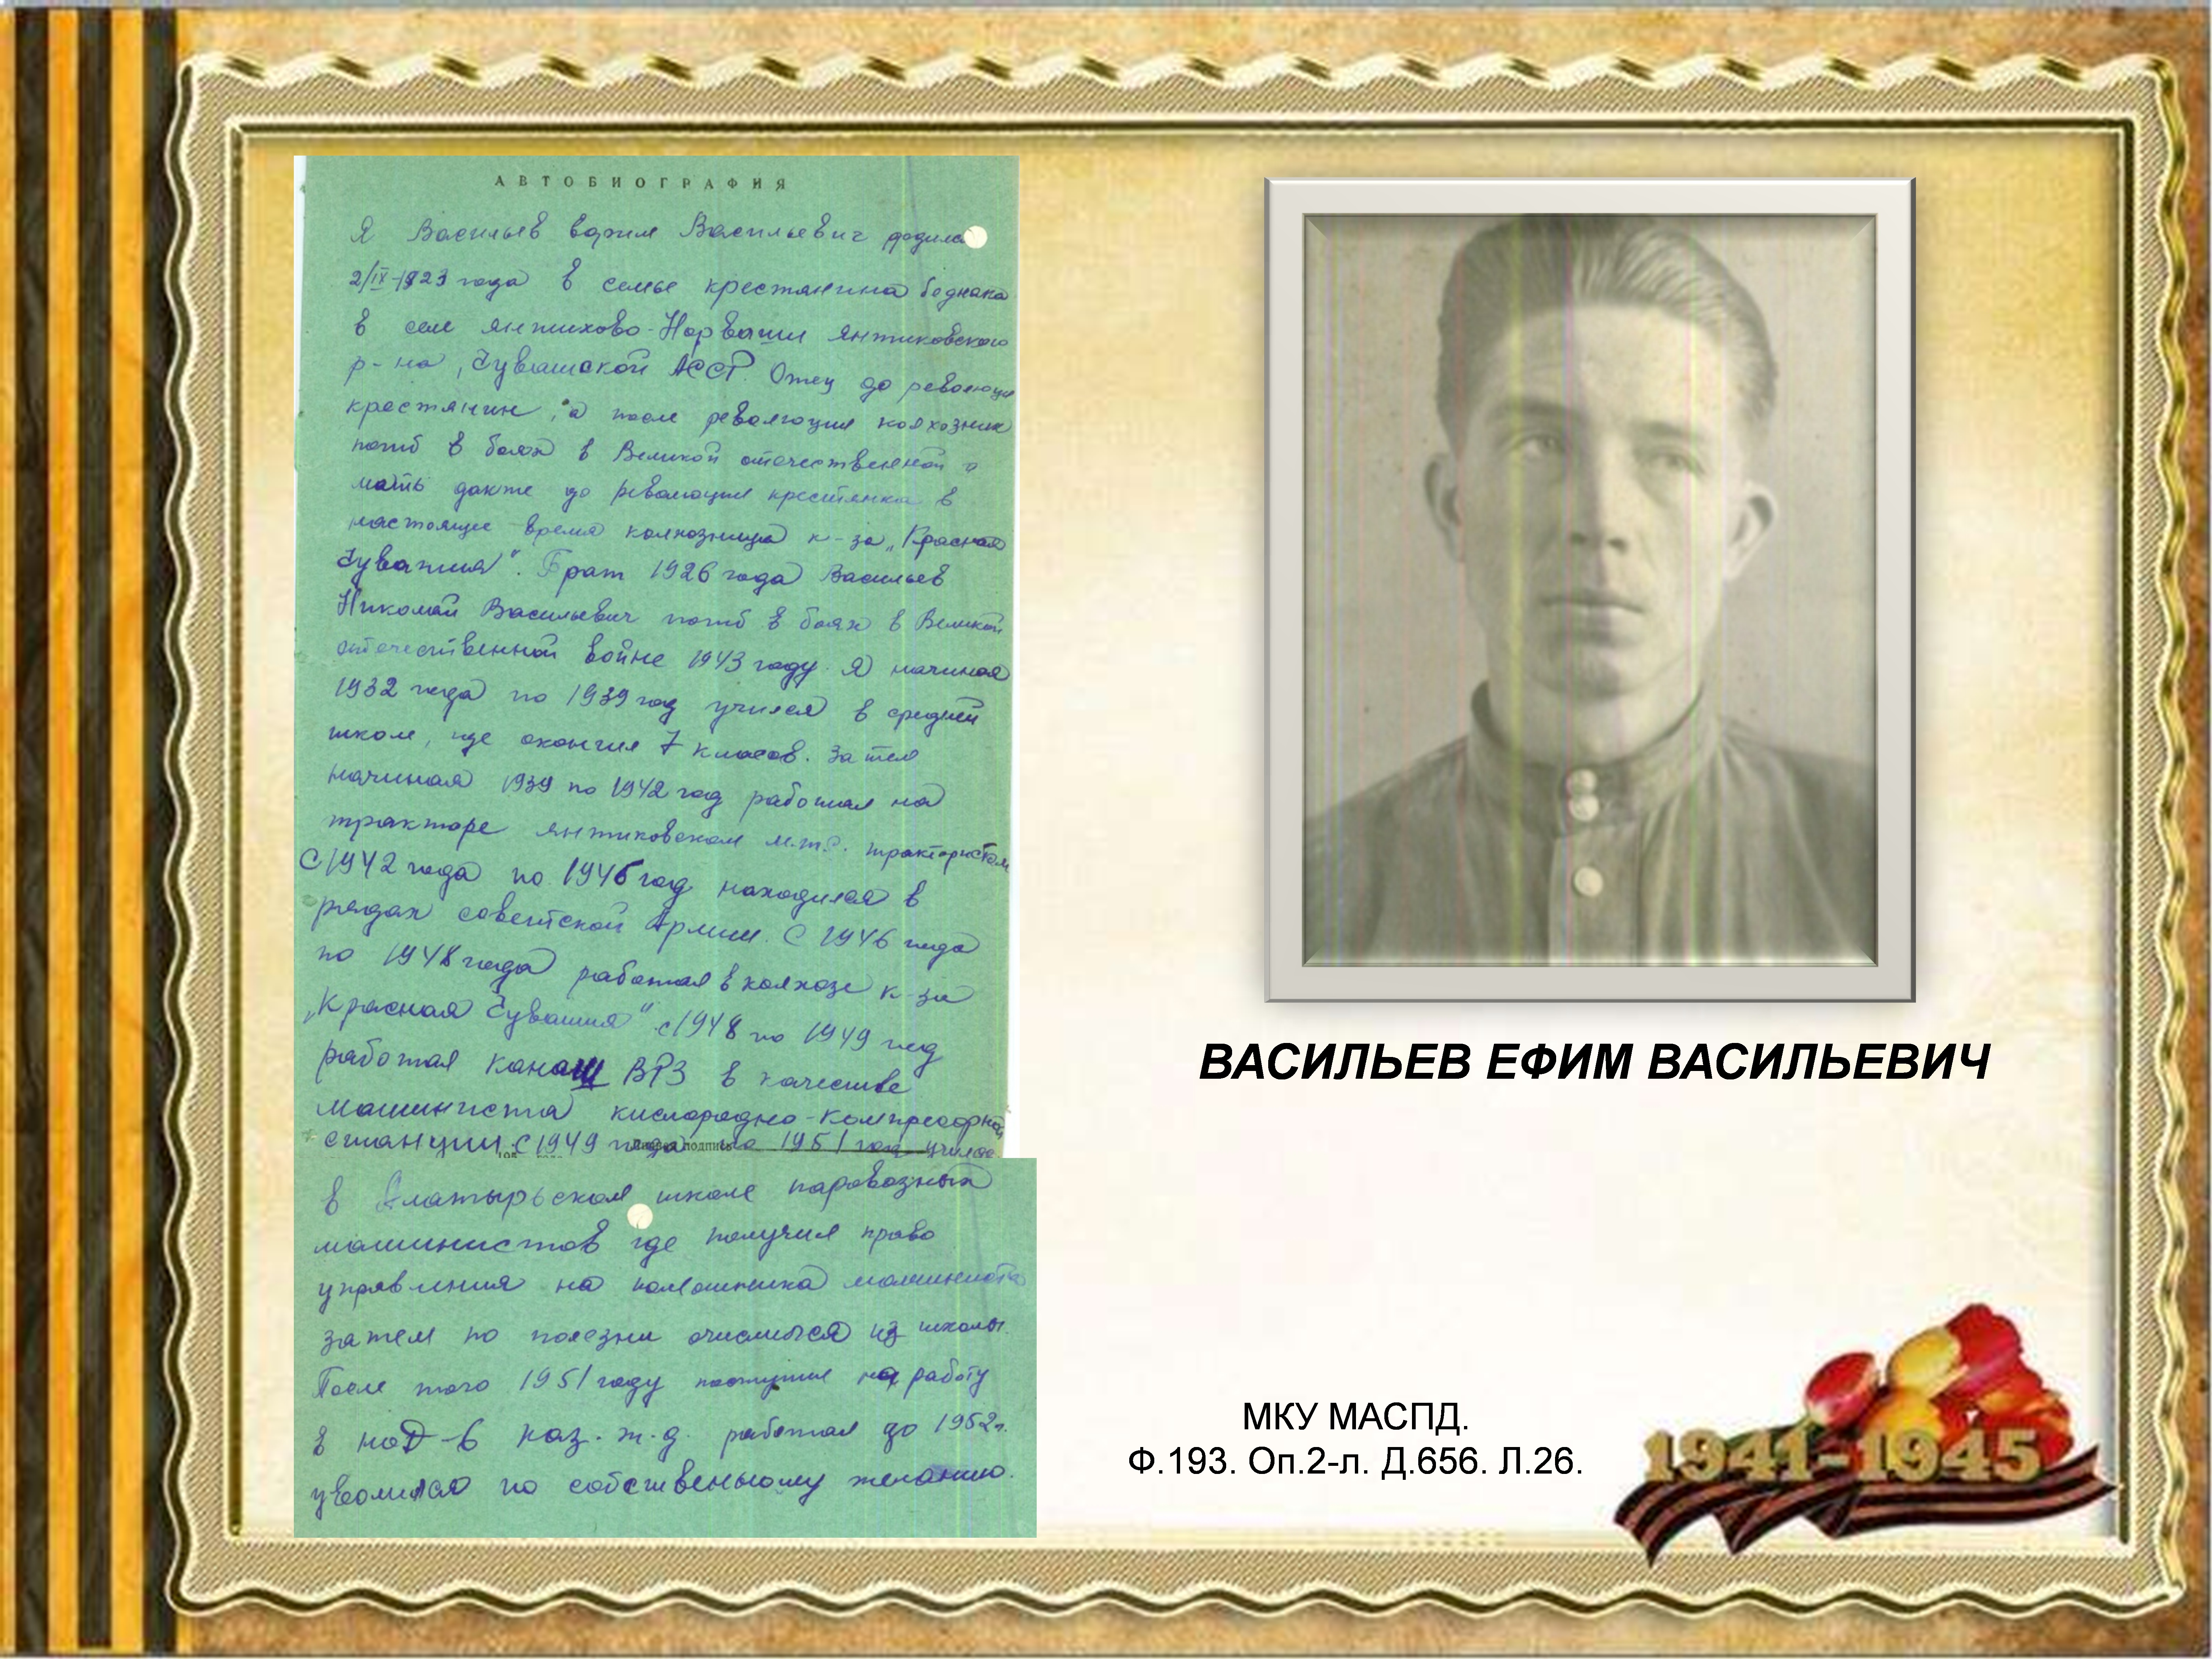 АВТОБИОГРАФИЯ
Я Васильев Ефим Васильевич родился
2/IX-1923 года в семье крестянина бедняка
в селе Янтихово-Норваши Янтиковского
р-на, Чувашской АССР. Отец до революции
крестянин, а после революции колхозник
погиб в боях в Великой отечественной а
мать также до революции крестянка в
настоящее время колхозница к-за „Красная
Чувашия". Брат 1926 года Васильев
Николай Васильевич погиб в боях в Великой
отечественной войне 1943 году. Я начиная
1932 года по 1939 год учился в средней
школе, где окончил 7 класов. Затем
начиная 1939 по 1942 год работал на
тракторе Янтиковском м.т.с. трактористом
С 1942 года по 1946 год находился в
рядах советской Армии. С 1946 года
по 1948 года работал в колхозе к-за
„Красная Чувашия" с 1948 по 1949 год
работал Канаш ВРЗ в качестве
машиниста кислородно-компресорной
станции. С 1949 года по 1951 год учился
подпись
в Алатырьской школе паровозных
машинистов где получил право
управления на помошника машиниста
затем по болезни очислился из школы.
После того 1951 году поступил на работу
в НОД-6 Каз.ж.д. работал до 1952 г.
уволился по собственному желанию.
ВАСИЛЬЕВ ЕФИМ ВАСИЛЬЕВИЧ
МКУ МАСПД.
Ф.193. Оп.2-л. Д.656. Л.26.
1941-1945